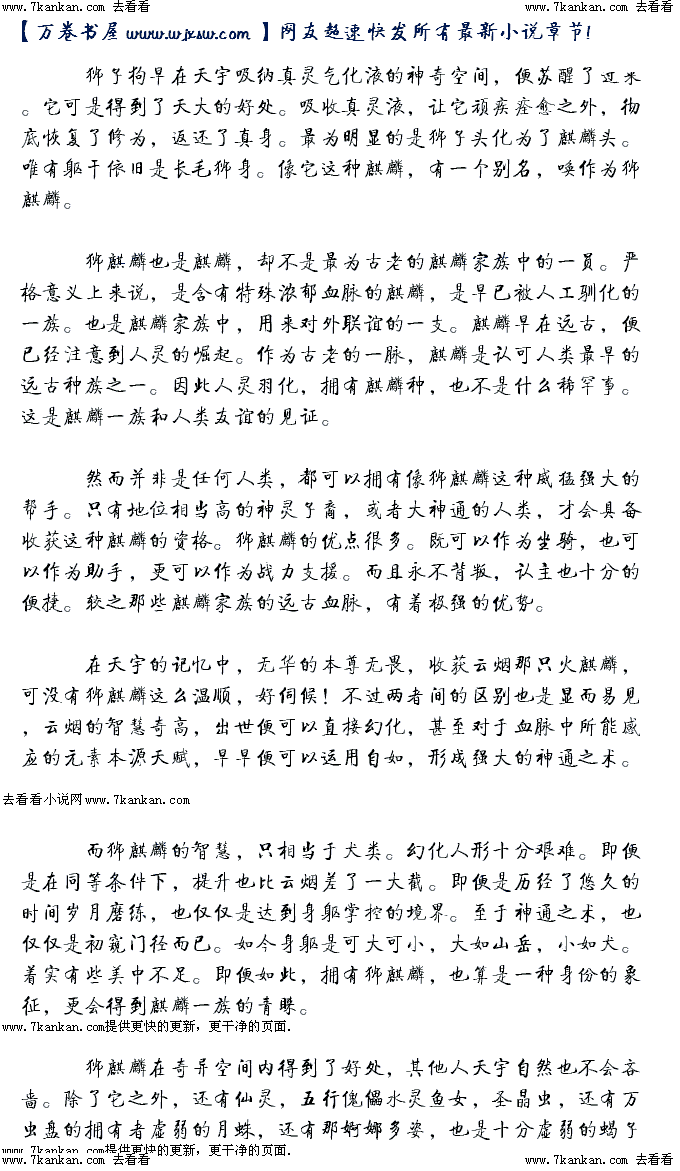 www.7kankan.com 去看看 www.7kankan.com 去看看
【万卷书屋 www.wjxsw.com 】网友超速快发所有最新小说章节!
狮子狗早在天宇吸纳真灵气化液的神奇空间，便苏醒了过来
。它可是得到了天大的好处。吸收真灵液，让它顽疾痊愈之外，彻
底恢复了修为，返还了真身。最为明显的是狮子头化为了麒麟头。
唯有躯干依旧是长毛狮身。像它这种麒麟，有一个别名，唤作为狮
麒麟。
狮麒麟也是麒麟，却不是最为古老的麒麟家族中的一员。严
格意义上来说，是含有特殊浓郁血脉的麒麟，是早已被人工驯化的
一族。也是麒麟家族中，用来对外联谊的一支。麒麟早在远古，便
已经注意到人灵的崛起。作为古老的一脉，麒麟是认可人类最早的
远古种族之一。因此人灵羽化，拥有麒麟种，也不是什么稀罕事。
这是麒麟一族和人类友谊的见证。
然而并非是任何人类，都可以拥有像狮麒麟这种威猛强大的
帮手。只有地位相当高的神灵子裔，或者大神通的人类，才会具备
收获这种麒麟的资格。狮麒麟的优点很多。既可以作为坐骑，也可
以作为助手，更可以作为战力支援。而且永不背叛，认主也十分的
便捷。较之那些麒麟家族的远古血脉，有着极强的优势。
在天宇的记忆中，无华的本尊无畏，收获云烟那只火麒麟，
可没有狮麒麟这么温顺，好伺候！不过两者间的区别也是显而易见
，云烟的智慧奇高，出世便可以直接幻化，甚至对于血脉中所能感
应的元素本源天赋，早早便可以运用自如，形成强大的神通之术。
去看看小说网www.7kankan.com
而狮麒麟的智慧，只相当于犬类。幻化人形十分艰难。即便
是在同等条件下，提升也比云烟差了一大截。即便是历经了悠久的
时间岁月磨练，也仅仅是达到身躯掌控的境界。至于神通之术，也
仅仅是初窥门径而已。如今身躯是可大可小，大如山岳，小如犬。
着实有些美中不足。即便如此，拥有狮麒麟，也算是一种身份的象
征，更会得到麒麟一族的青睐。
www.7kankan.com提供更快的更新，更干净的页面.
狮麒麟在奇异空间内得到了好处，其他人天宇自然也不会吝
啬。除了它之外，还有仙灵，五行傀儡水灵鱼女，圣晶虫，还有万
虫盘的拥有者虚弱的月蛛，还有那婀娜多姿，也是十分虚弱的蝎子
www.7kankan.com提供更快的更新，更干净的页面.
www.7kankan.com 去看看 www.7kankan.com 去看看